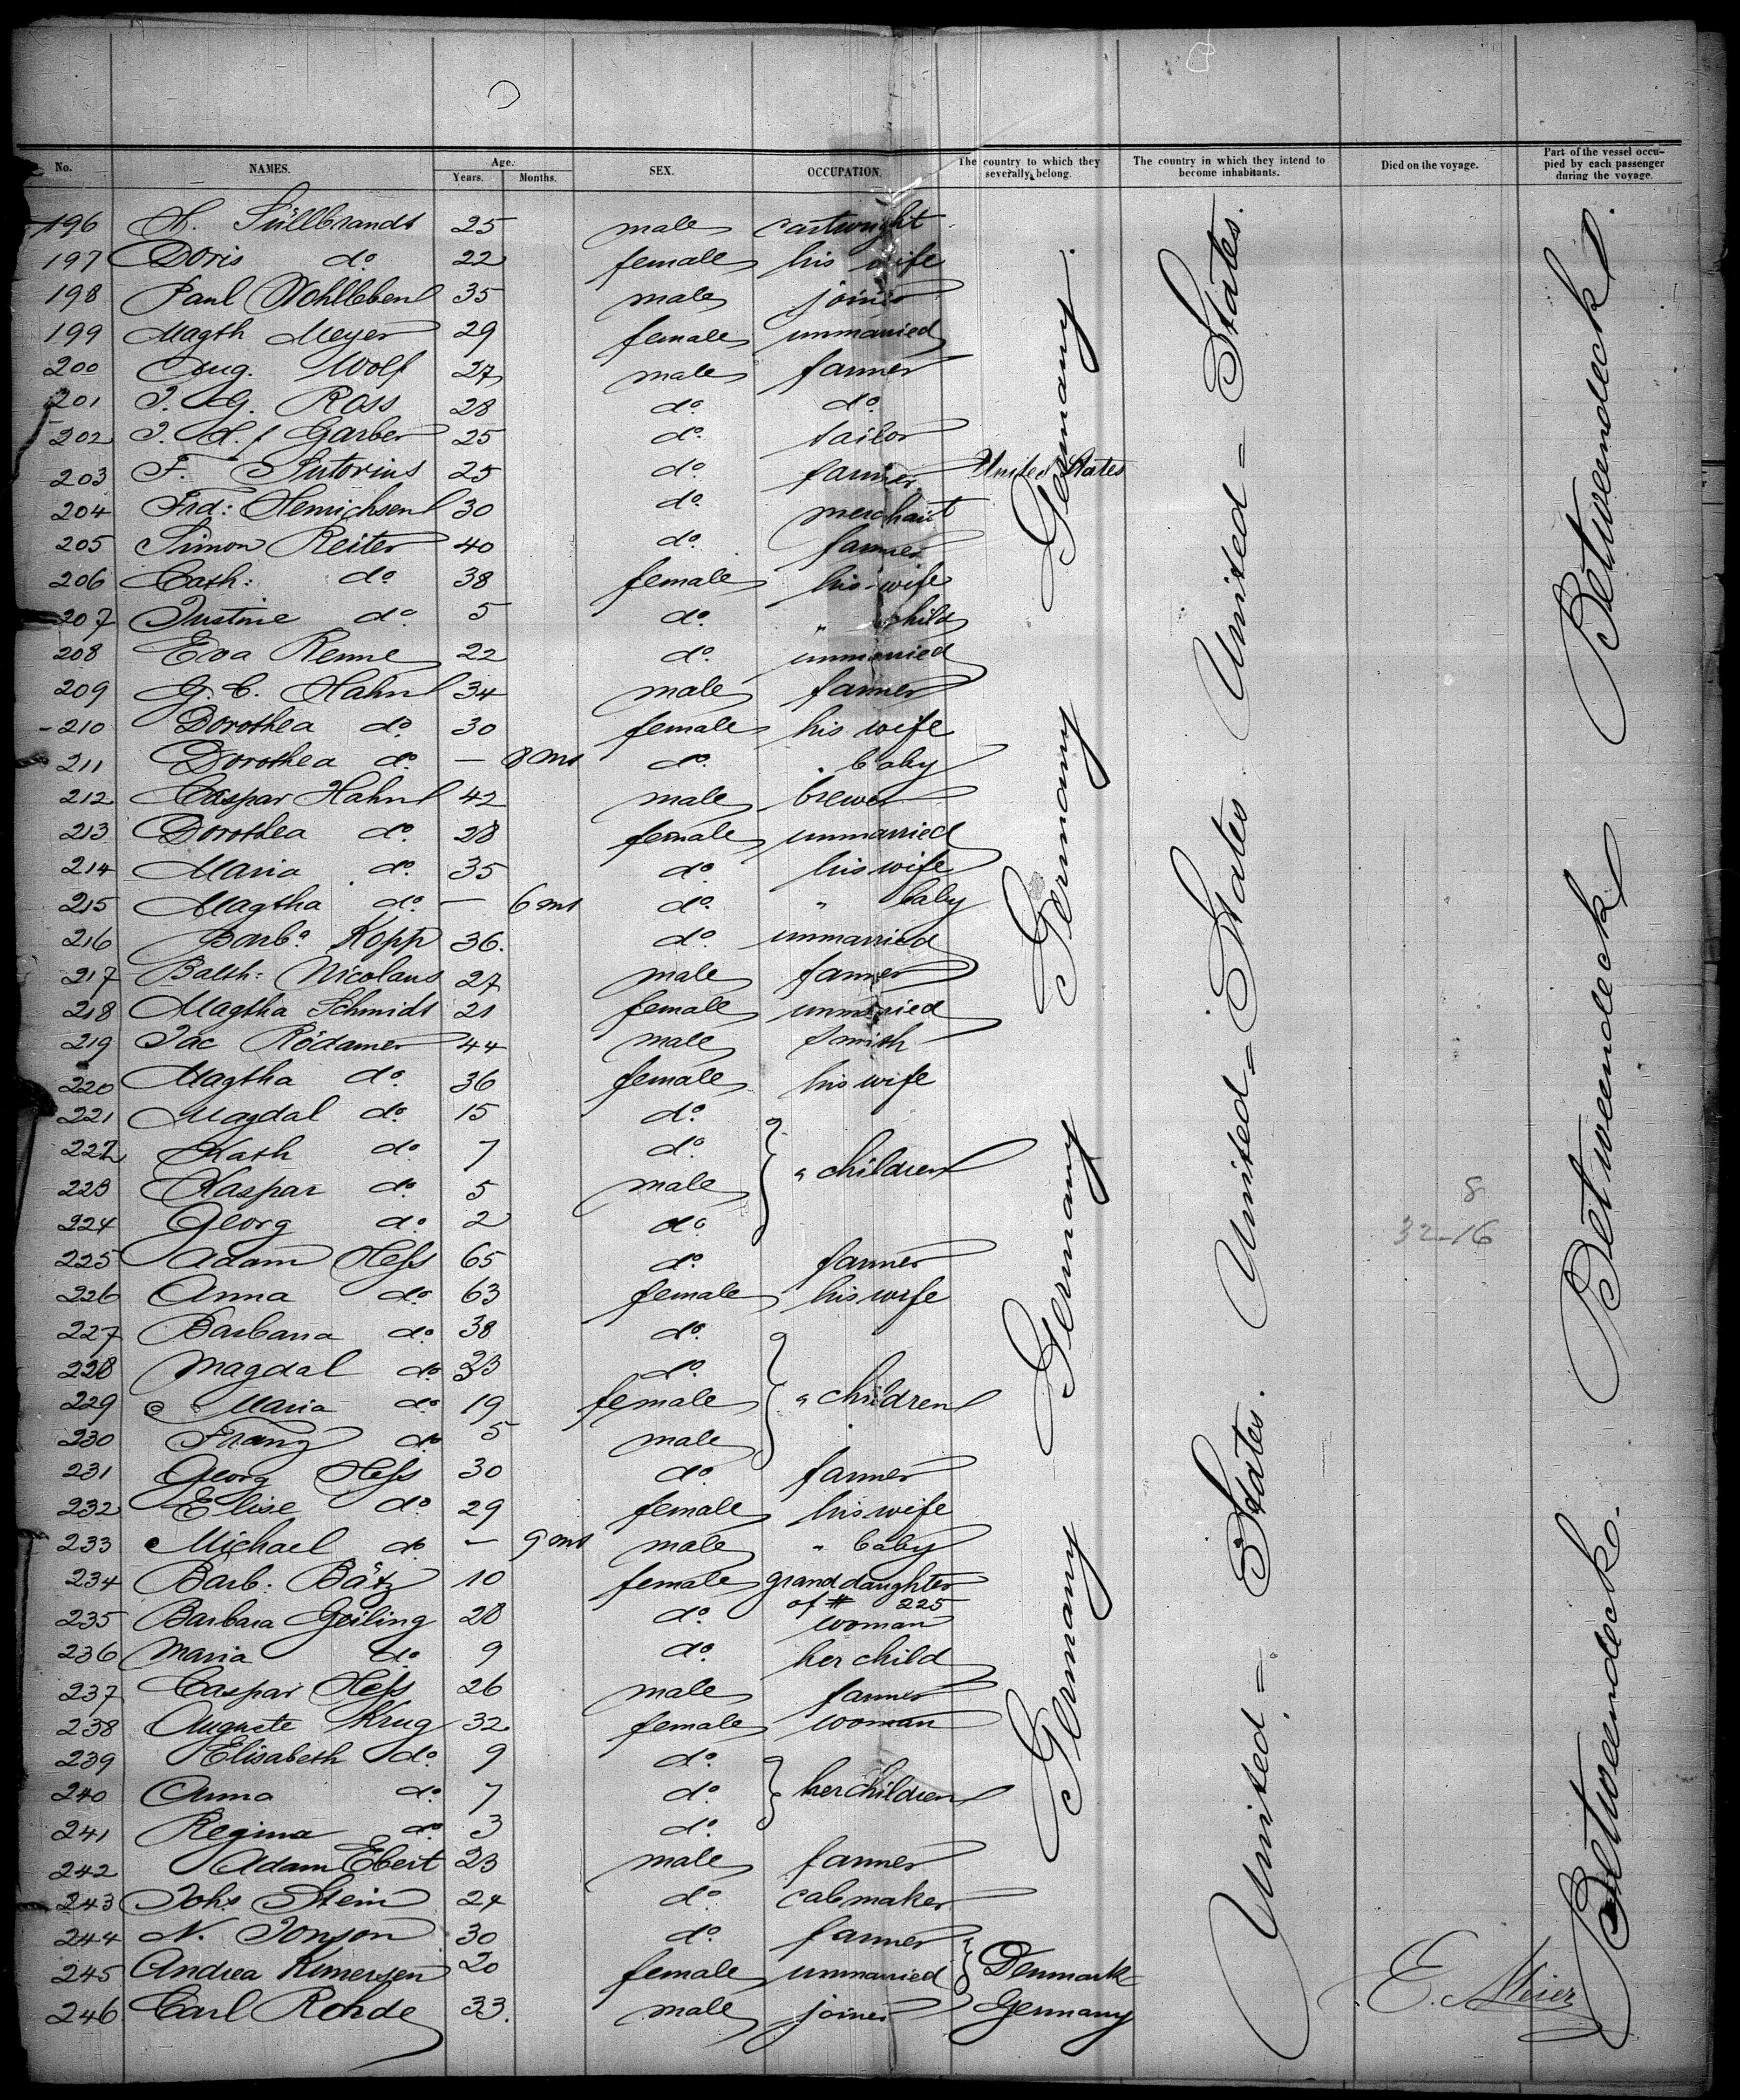 No. NAMES. Age. Years. Months. SEX. OCCUPATION. The country to which they severally belong. The country in which they intend to become inhabitants. Died on the voyage. Part of the vessel occupied by each passenger during the voyage.
196 H. Süllbrandt 25 male cartwright
197 Doris do 22 female his wife
198 Paul Wohlleben 35 male joiner
199 Magth Meyer 29 female unmarried
200 Aug. Wolf 27 male farmer
201 J. G. Ross 28 do do
202 J. Garber 25 do tailor
203 F. Sutorius 25 do farmer United States
204 Frd: Henrichsen 30 do merchant
205 Simon Reiter 40 do farmer
206 Cath: do 38 female his wife
207 Justine do 5 do " child
208 Eva Renne 22 do unmarried
209 G. C. Hahn 34 male farmer
210 Dorothea do 30 female his wife
211 Dorothea do — 8 ms do " baby
212 Caspar Hahn 42 male brewer
213 Dorothea do 28 female unmarried
214 Maria do 35 do his wife
215 Magtha do — 6 ms do " baby
216 Barba Kopp 36. do unmarried
217 Balth: Nicolaus 27 male farmer
218 Magtha Schmidt 21 female unmarried
219 Jac Rödamer 44 male smith
220 Magtha do 36 female his wife
221 Magdal do 15 do
222 Kath do 7 do " children
223 Kaspar do 5 male
224 Georg do 2 do
225 Adam Heſs 65 do farmer
226 Anna do 63 female his wife
227 Barbara do 38 do
228 Magdal do 23 do
229 Maria do 19 female " children
230 Franz do 5 male
231 Georg Heſs 30 do farmer
232 Elise do 29 female his wife
233 Michael do — 9 ms male " baby
234 Barb: Bätz 10 female granddaughter of # 225
235 Barbara Geiling 28 do woman
236 Maria do 9 do her child
237 Caspar Heſs 26 male farmer
238 Auguste Krug 32 female woman
239 Elisabeth do 9 do
240 Anna do 7 do her children
241 Regina do 3 do
242 Adam Ebert 23 male farmer
243 Johs Stein 24 do cabmaker
244 N. Jonson 30 do farmer
245 Andrea Kimersen 20 female unmarried Denmark
246 Carl Rohde 33. male joiner Germany
Germany Germany Germany Germany.
United = States. United = States United = States.
8
32-16
E. Meier
Betweendeck. Betweendeck Betweendeck.